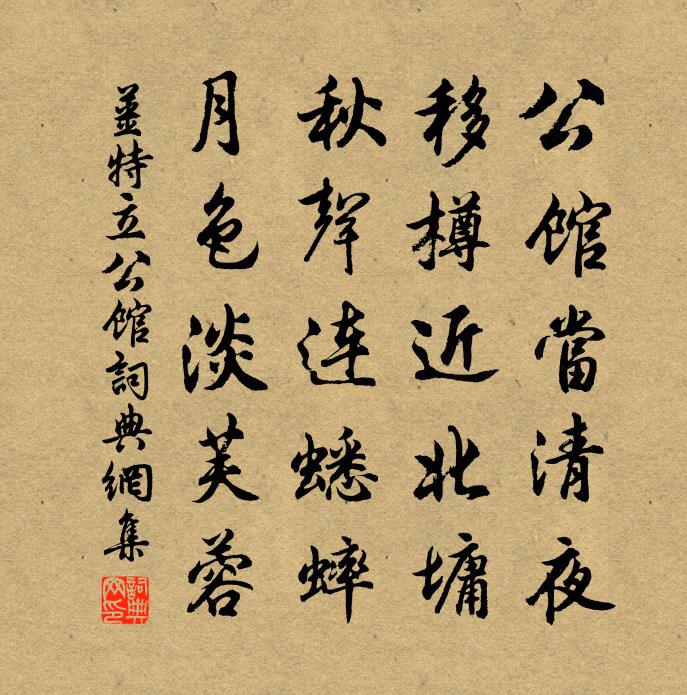 公館當清夜
移樽近北墉
秋聲連蟋蟀
月色淡芙蓉
姜特立公館詞典網集
詞典網印